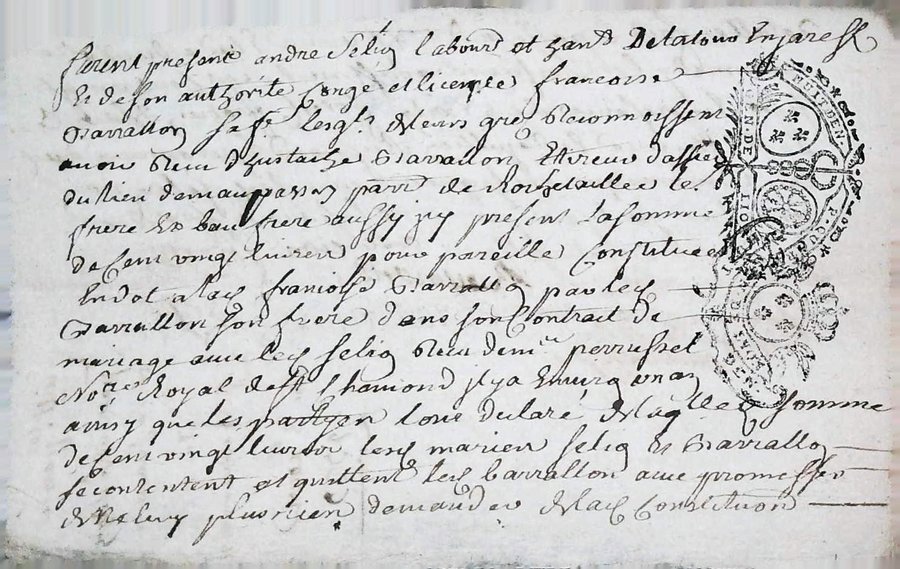 furent presents andre seliq labour et hant De Latour En jarest
Et de son authorité Conge et licence francoise
Barrallon sa fe lesqls De leurs gré Reconnoissent
avoir Receu d'Eustache Barrallon
du lieu de maupassn parr de Rochetaillee les
frere Et beau frere aussy icy present La somme
de Cent vingt livres pour pareille Constituee
En dot a lad francoise Barrallon par led
Barrallon son frere dans son Contract de
mariage avec led seliq Receu de me perrussel
Nore Royal de st Chamond il y a Environ un an
ainsy que les partyes l'ont declaré De laqlle somme
de Cent vingt livres lesd mariez seliq Et Barrallon
se contentent et quittent led barrallon avec promesse
De ne luy plus rien demander De lad Constitution
HUITDEN
P. CU
LION